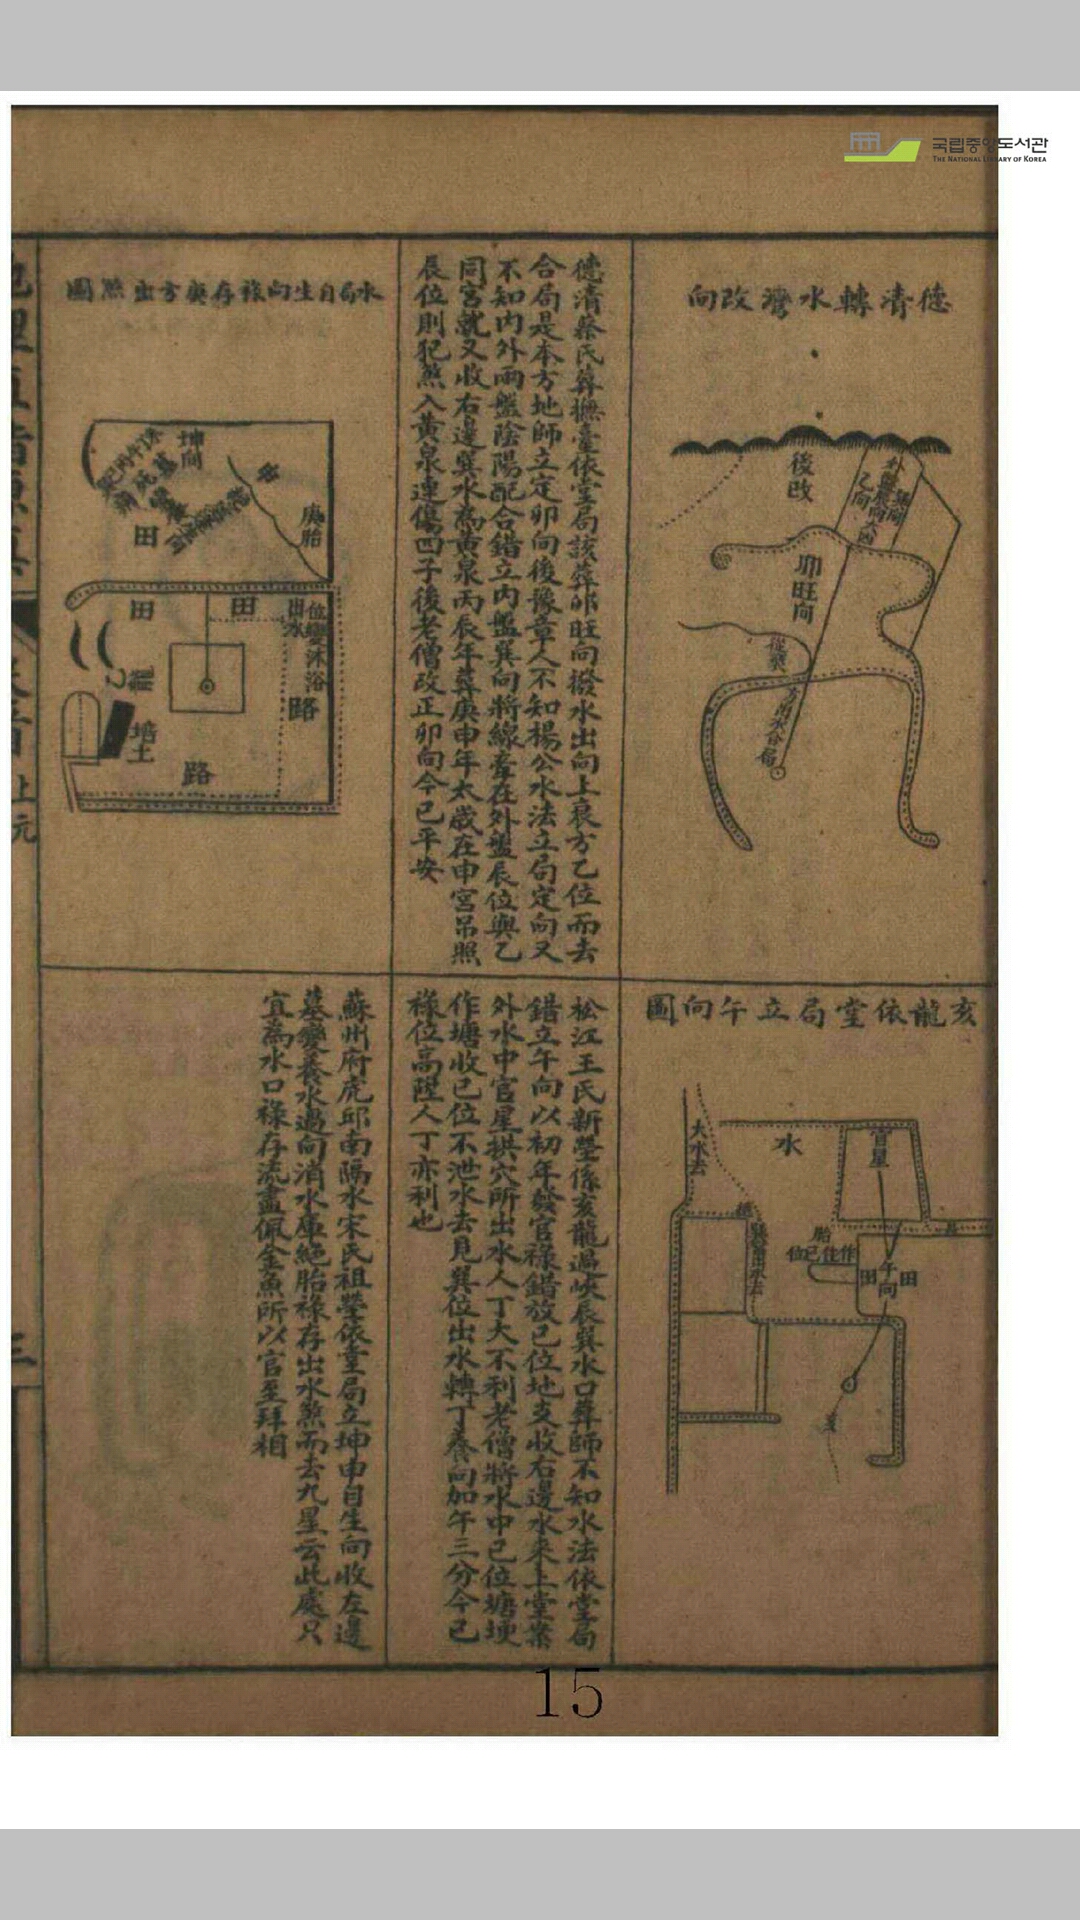 국립중앙도서관
THE NATIONAL LIBRARY OF KOREA
德清轉水灣改向
後改
卯旺向
德清蔡氏葬撫臺依堂局該葬卯旺向撥水出向上衰方乙位而去
合局是本方地師立定卯向後豫章人不知楊公水法立局定向又
不知內外兩盤陰陽配合錯立內盤巽向將線牽在外盤辰位與乙
同宮就又收右邊巽水為黃泉丙辰年葬庚申年太歲在申宮吊照
辰位則犯煞入黃泉連傷四子後老僧改正卯向今已平安
水局自生向祿存庚方出煞圖
坤向
庚胎
田
田
田
位變沐浴
出水
路
龍
培土
路
亥龍依堂局立午向圖
大水去
水
官星
胎
作住已位
田
午向
田
松江王氏新塋係亥龍過峽辰巽水口葬師不知水法依堂局
錯立午向以初年發官祿錯放已位地支收右邊水來上堂案
外水中官星拱穴所出水人丁大不利老僧將水中已位塘埂
作塘收已位不泄水去見巽位出水轉丁養向加午三分今已
祿位高陞人丁亦利也
蘇州府虎邱南隔水宋氏祖塋依堂局立坤申自生向收左邊
墓變養水過向消水庫絕胎祿存出水煞而去九星云此處只
宜為水口祿存流盡佩金魚所以官至拜相
上元
三
15